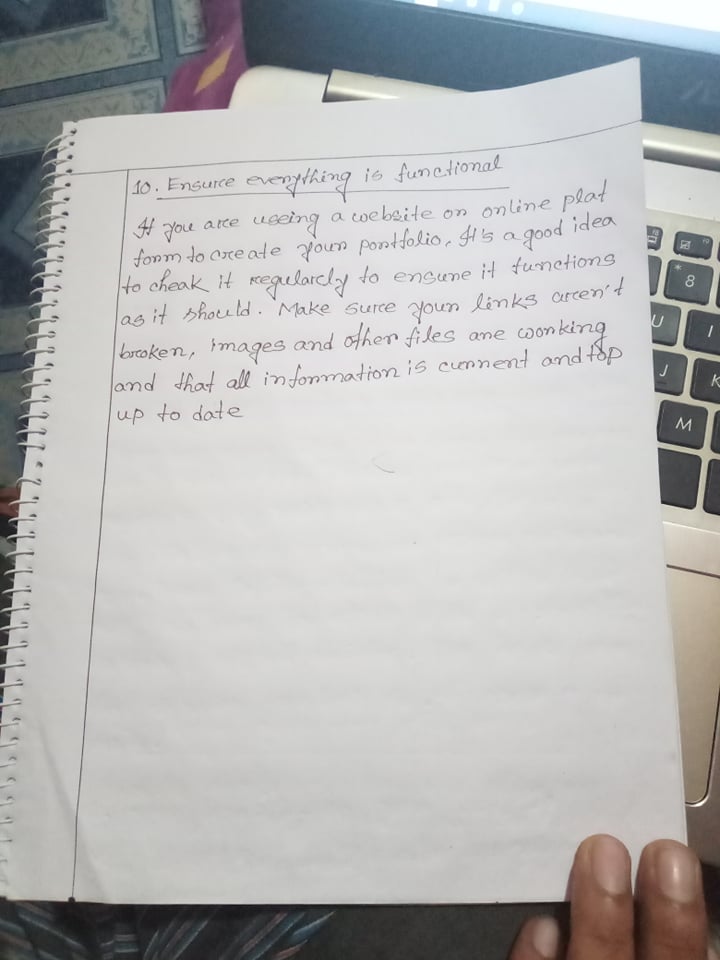 10. Ensure everything is functional
If you are useing a website on online plat
form to create your pontfolio, It's a good idea
to cheak it regularly to ensure it functions
as it should. Make sure your links aren't
broken, images and other files are working
and that all information is current and top
up to date
F8
F9
*
8
U
I
J
K
M